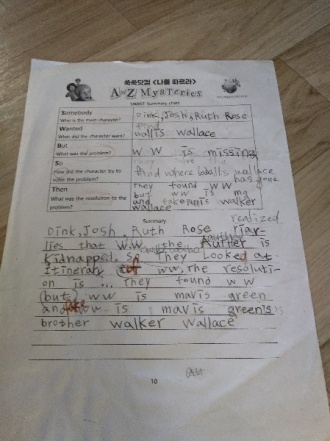 쑥쑥닷컴 <나를 따르라>
A to Z Mysteries
SWBST Summary chart
Somebody
Who is the main character?
Dink, Josh, Ruth Rose
Wanted
What did the character want?
wallis wallace
But
What was the problem?
w w is missing
So
How did the character try to solve the problem?
find where wallis wallace has gone
Then
What was the resolution to the problem?
They found ww
but ww is mg
and is walker
Summary
realized
Dink, Josh, Ruth Rose
lies that ww the is
kidnapped. So They Looked at
Itinerary of ww, The resoluti-
on is ... They found ww
(but) ww is mavis green
and is mavis green's
brother walker wallace
10